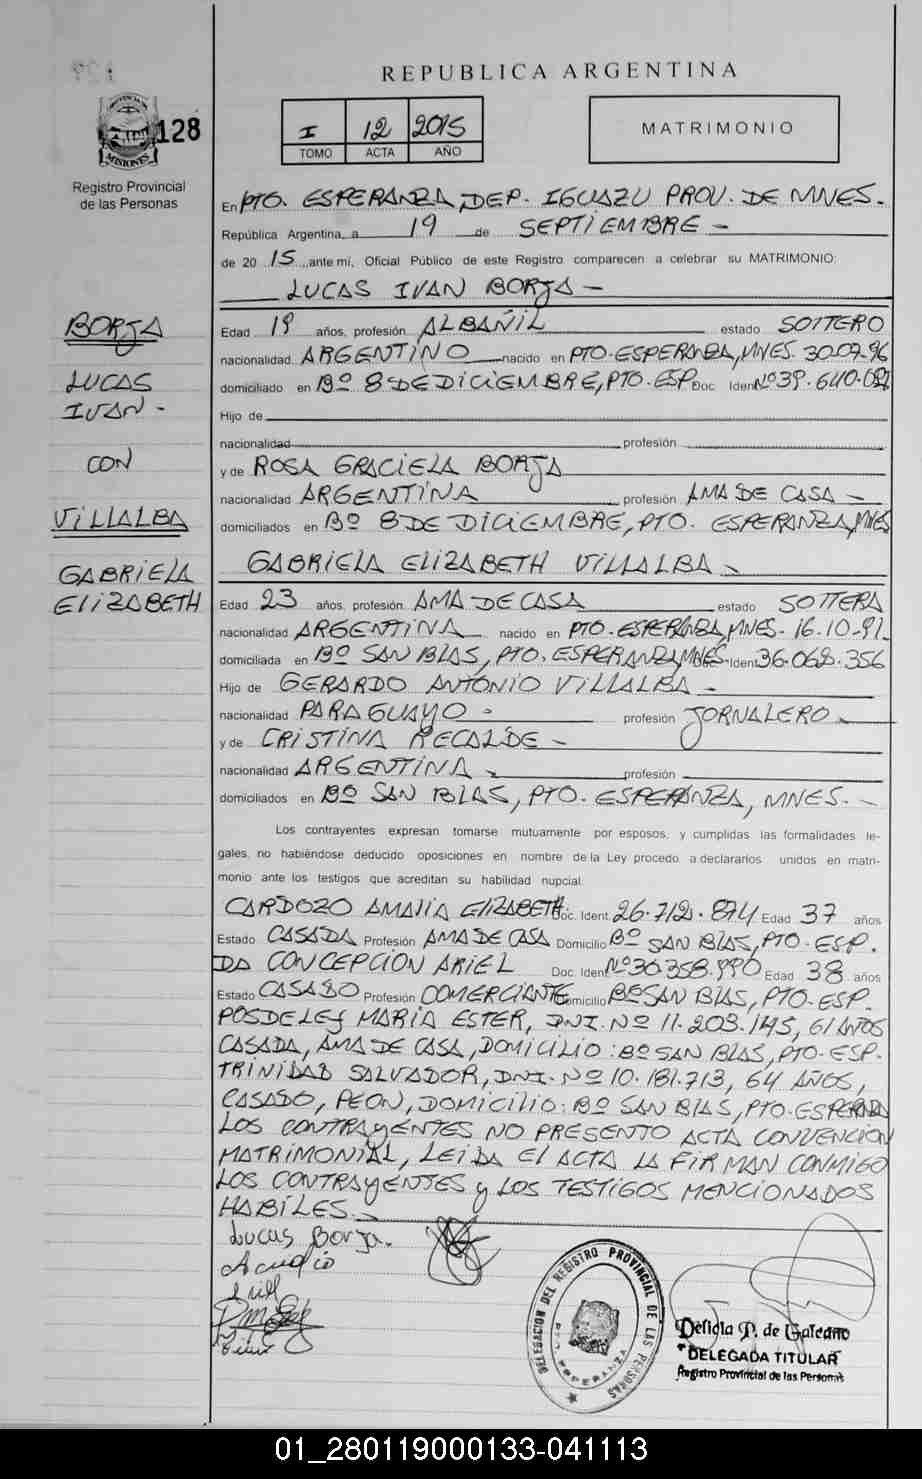 REPUBLICA ARGENTINA
PROVINCIA DE
MISIONES
128
Registro Provincial
de las Personas
I 12 2015
TOMO ACTA AÑO
MATRIMONIO
En PTO. ESPERANZA, DEP. IGUAZU PROV. DE MNES.
República Argentina, a 19 de SEPTIEMBRE -
de 20 15, ante mí, Oficial Público de este Registro comparecen a celebrar su MATRIMONIO:
LUCAS IVAN BORJA -
BORJA
LUCAS
IVAN -
CON
VILLALBA
GABRIELA
ELIZABETH
Edad 19 años, profesión ALBAÑIL estado SOLTERO
nacionalidad ARGENTINO nacido en PTO. ESPERANZA, MNES. 30.09.96
domiciliado en Bº 8 DE DICIEMBRE, PTO. ESP. Doc. Iden Nº 39.640.
Hijo de
nacionalidad profesión
y de ROSA GRACIELA BORJA
nacionalidad ARGENTINA profesión AMA DE CASA -
domiciliados en Bº 8 DE DICIEMBRE, PTO. ESPERANZA, MNES
GABRIELA ELIZABETH VILLALBA -
Edad 23 años, profesión AMA DE CASA estado SOLTERA
nacionalidad ARGENTINA nacido en PTO. ESPERANZA, MNES - 16.10.91
domiciliada en Bº SAN BLAS, PTO. ESPERANZA, MNES. Ident 36.062.356
Hijo de GERARDO ANTONIO VILLALBA -
nacionalidad PARAGUAYO - profesión JORNALERO -
y de CRISTINA RECALDE -
nacionalidad ARGENTINA - profesión
domiciliados en Bº SAN BLAS, PTO. ESPERANZA, MNES. -
Los contrayentes expresan tomarse mutuamente por esposos, y cumplidas las formalidades le-
gales, no habiéndose deducido oposiciones en nombre de la Ley procedo a declararlos unidos en matri-
monio ante los testigos que acreditan su habilidad nupcial.
CARDOZO AMALIA ELIZABETH Doc. Ident. 26.712.874 Edad 37 años
Estado CASADA Profesión AMA DE CASA Domicilio Bº SAN BLAS, PTO. ESP.
DA CONCEPCION ARIEL Doc. Iden Nº 30.358.990 Edad 38 años
Estado CASADO Profesión COMERCIANTE Domicilio Bº SAN BLAS, PTO. ESP.
POSDELEY MARIA ESTER, DNI. Nº 11.203.145, 61 AÑOS
CASADA, AMA DE CASA, DOMICILIO: Bº SAN BLAS, PTO. ESP.
TRINIDAD SALVADOR, DNI. Nº 10.181.713, 64 AÑOS,
CASADO, PEON, DOMICILIO: Bº SAN BLAS, PTO. ESPERANZA
LOS CONTRAYENTES NO PRESENTO ACTA CONVENCION
MATRIMONIAL, LEIDA EL ACTA LA FIRMAN CONMIGO
LOS CONTRAYENTES Y LOS TESTIGOS MENCIONADOS
HABILES. -
Lucas Borja.
DELEGACION DEL REGISTRO PROVINCIAL DE LAS PERSONAS
PTO ESPERANZA
Delicia P. de Galeano
DELEGADA TITULAR
Registro Provincial de las Personas
01_280119000133-041113